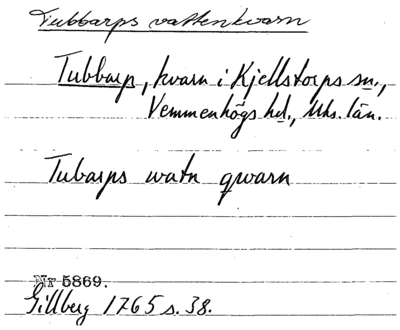 Tubbarps vattenkvarn
Tubbarp, kvarn i Kjellstorps sn.,
Vemmenhögs hd., Mhs. län.
Tubarps watn qwarn
Nr 5869.
Gillberg 1765 s. 38.